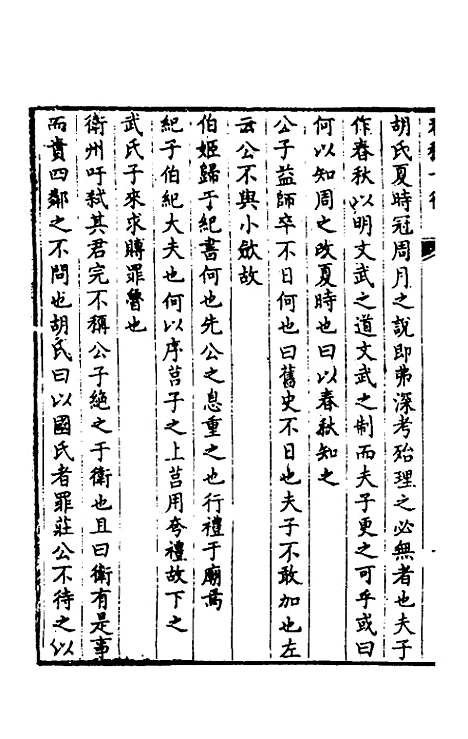 胡氏夏時冠周月之說即弗深考殆理之必無者也夫子
作春秋以明文武之道文武之制而夫子更之可乎或曰
何以知周之改夏時也曰以春秋知之
公子益師卒不日何也曰舊史不日也夫子不敢加也左
云公不與小斂故
伯姬歸于紀書何也先公之息重之也行禮于廟焉
紀子伯紀大夫也何以序莒子之上莒用夸禮故下之
武氏子來求賻罪魯也
衛州吁弒其君完不稱公子絕之于衛也且曰衛有是事
而責四鄰之不問也胡氏曰以國氏者罪莊公不待之以